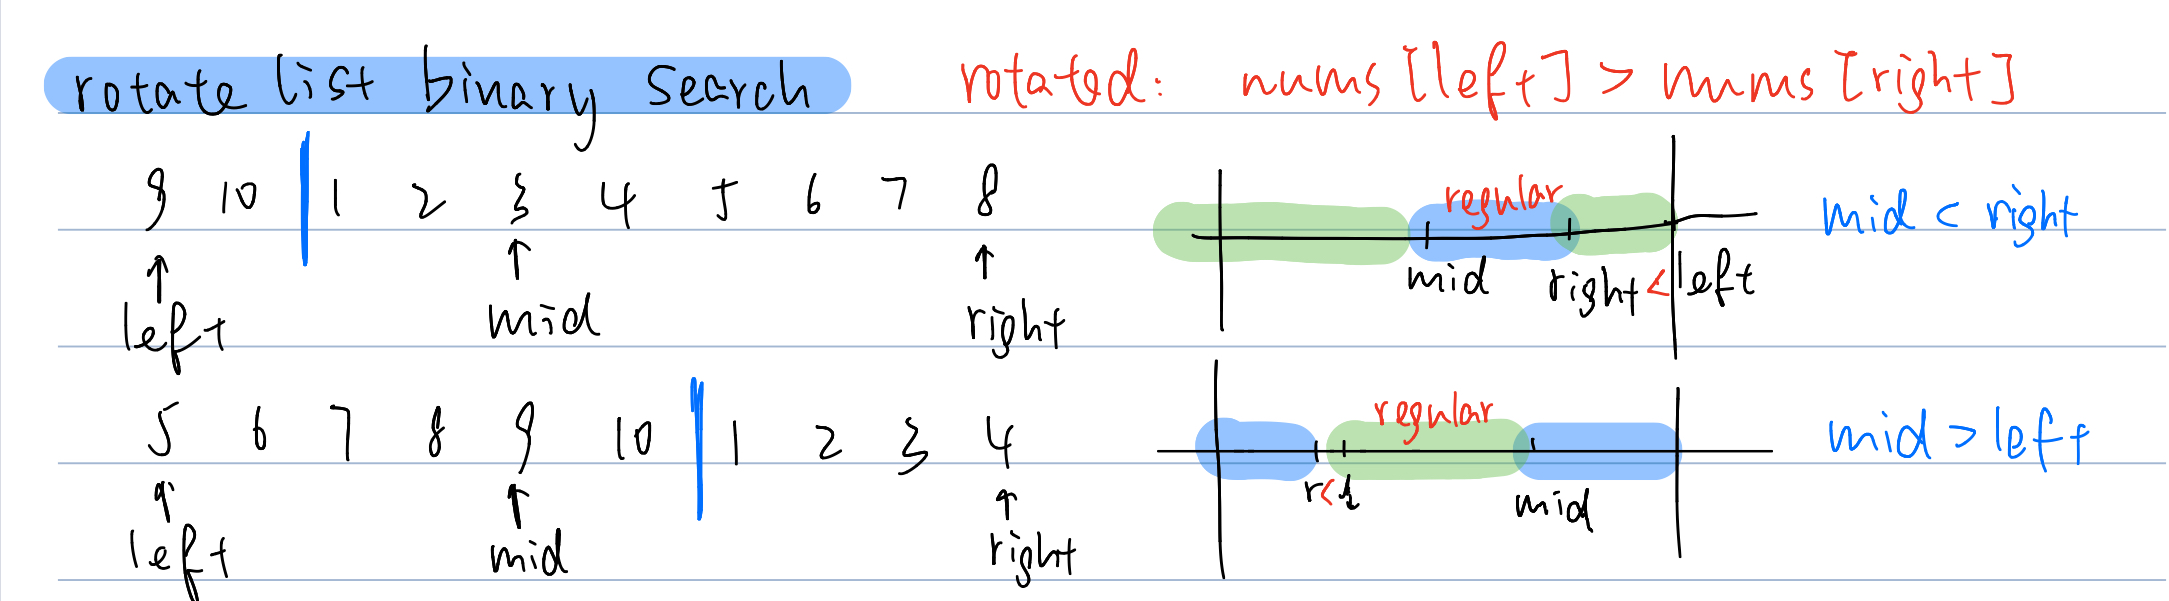 rotate list binary search
rotated: nums [left] > nums [right]
9 10 1 2 3 4 5 6 7 8
left mid right
regular
mid right < left
mid < right
5 6 7 8 9 10 1 2 3 4
left mid right
regular
r < l mid
mid > left